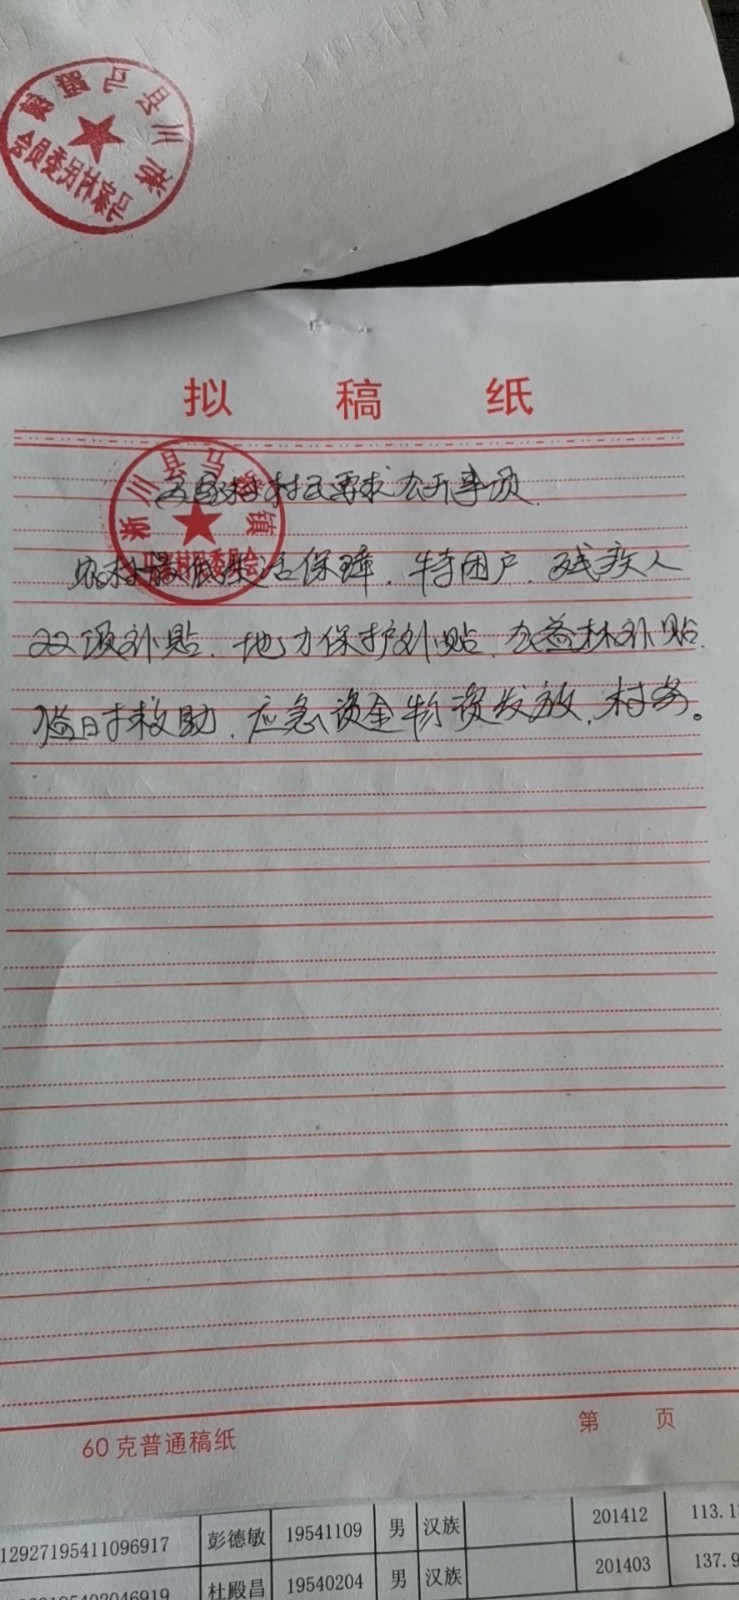 淅川县马蹬镇
马家村村民委员会
拟 稿 纸
淅川县马蹬镇
马家村村民委员会
马家村村民要求公开事项
农村最低生活保障、特困户、残疾人
双项补贴、地力保护补贴、公益林补贴、
临时救助、应急资金物资发放、村务。
60克普通稿纸
第 页
12927195411096917 彭德敏 19541109 男 汉族 201412
杜殿昌 19540204 男 汉族 201403